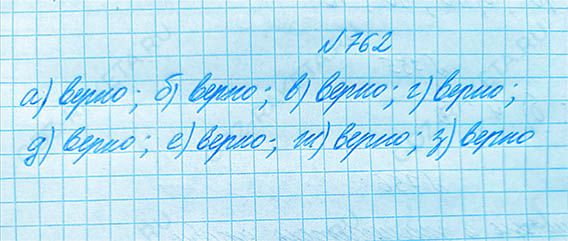 № 762
а) верно; б) верно; в) верно; г) верно;
д) верно; е) верно; ж) верно; з) верно